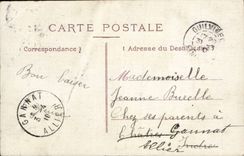 CARTE POSTALE
Correspondance
Adresse du Destinataire
Bon baiser
Mademoiselle
Jeanne
Chez ses parents à
Gannat
Allier
GANNAT
ALLIER